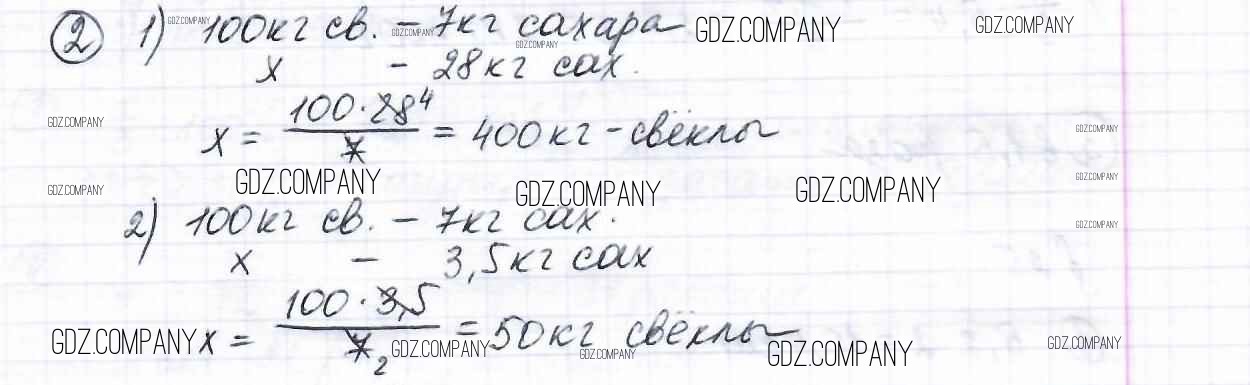 ② 1) 100кг св. – 7кг сахара GDZ.COMPANY GDZ.COMPANY
GDZ.COMPANY GDZ.COMPANY GDZ.COMPANY
х – 28кг сах.
GDZ.COMPANY х = 100·28⁴/7 = 400кг – свёклы GDZ.COMPANY
GDZ.COMPANY GDZ.COMPANY GDZ.COMPANY GDZ.COMPANY GDZ.COMPANY
2) 100кг св. – 7кг сах. GDZ.COMPANY
х – 3,5кг сах
GDZ.COMPANY х = 100·3,5/7₂ = 50кг свёклы GDZ.COMPANY
GDZ.COMPANY GDZ.COMPANY GDZ.COMPANY